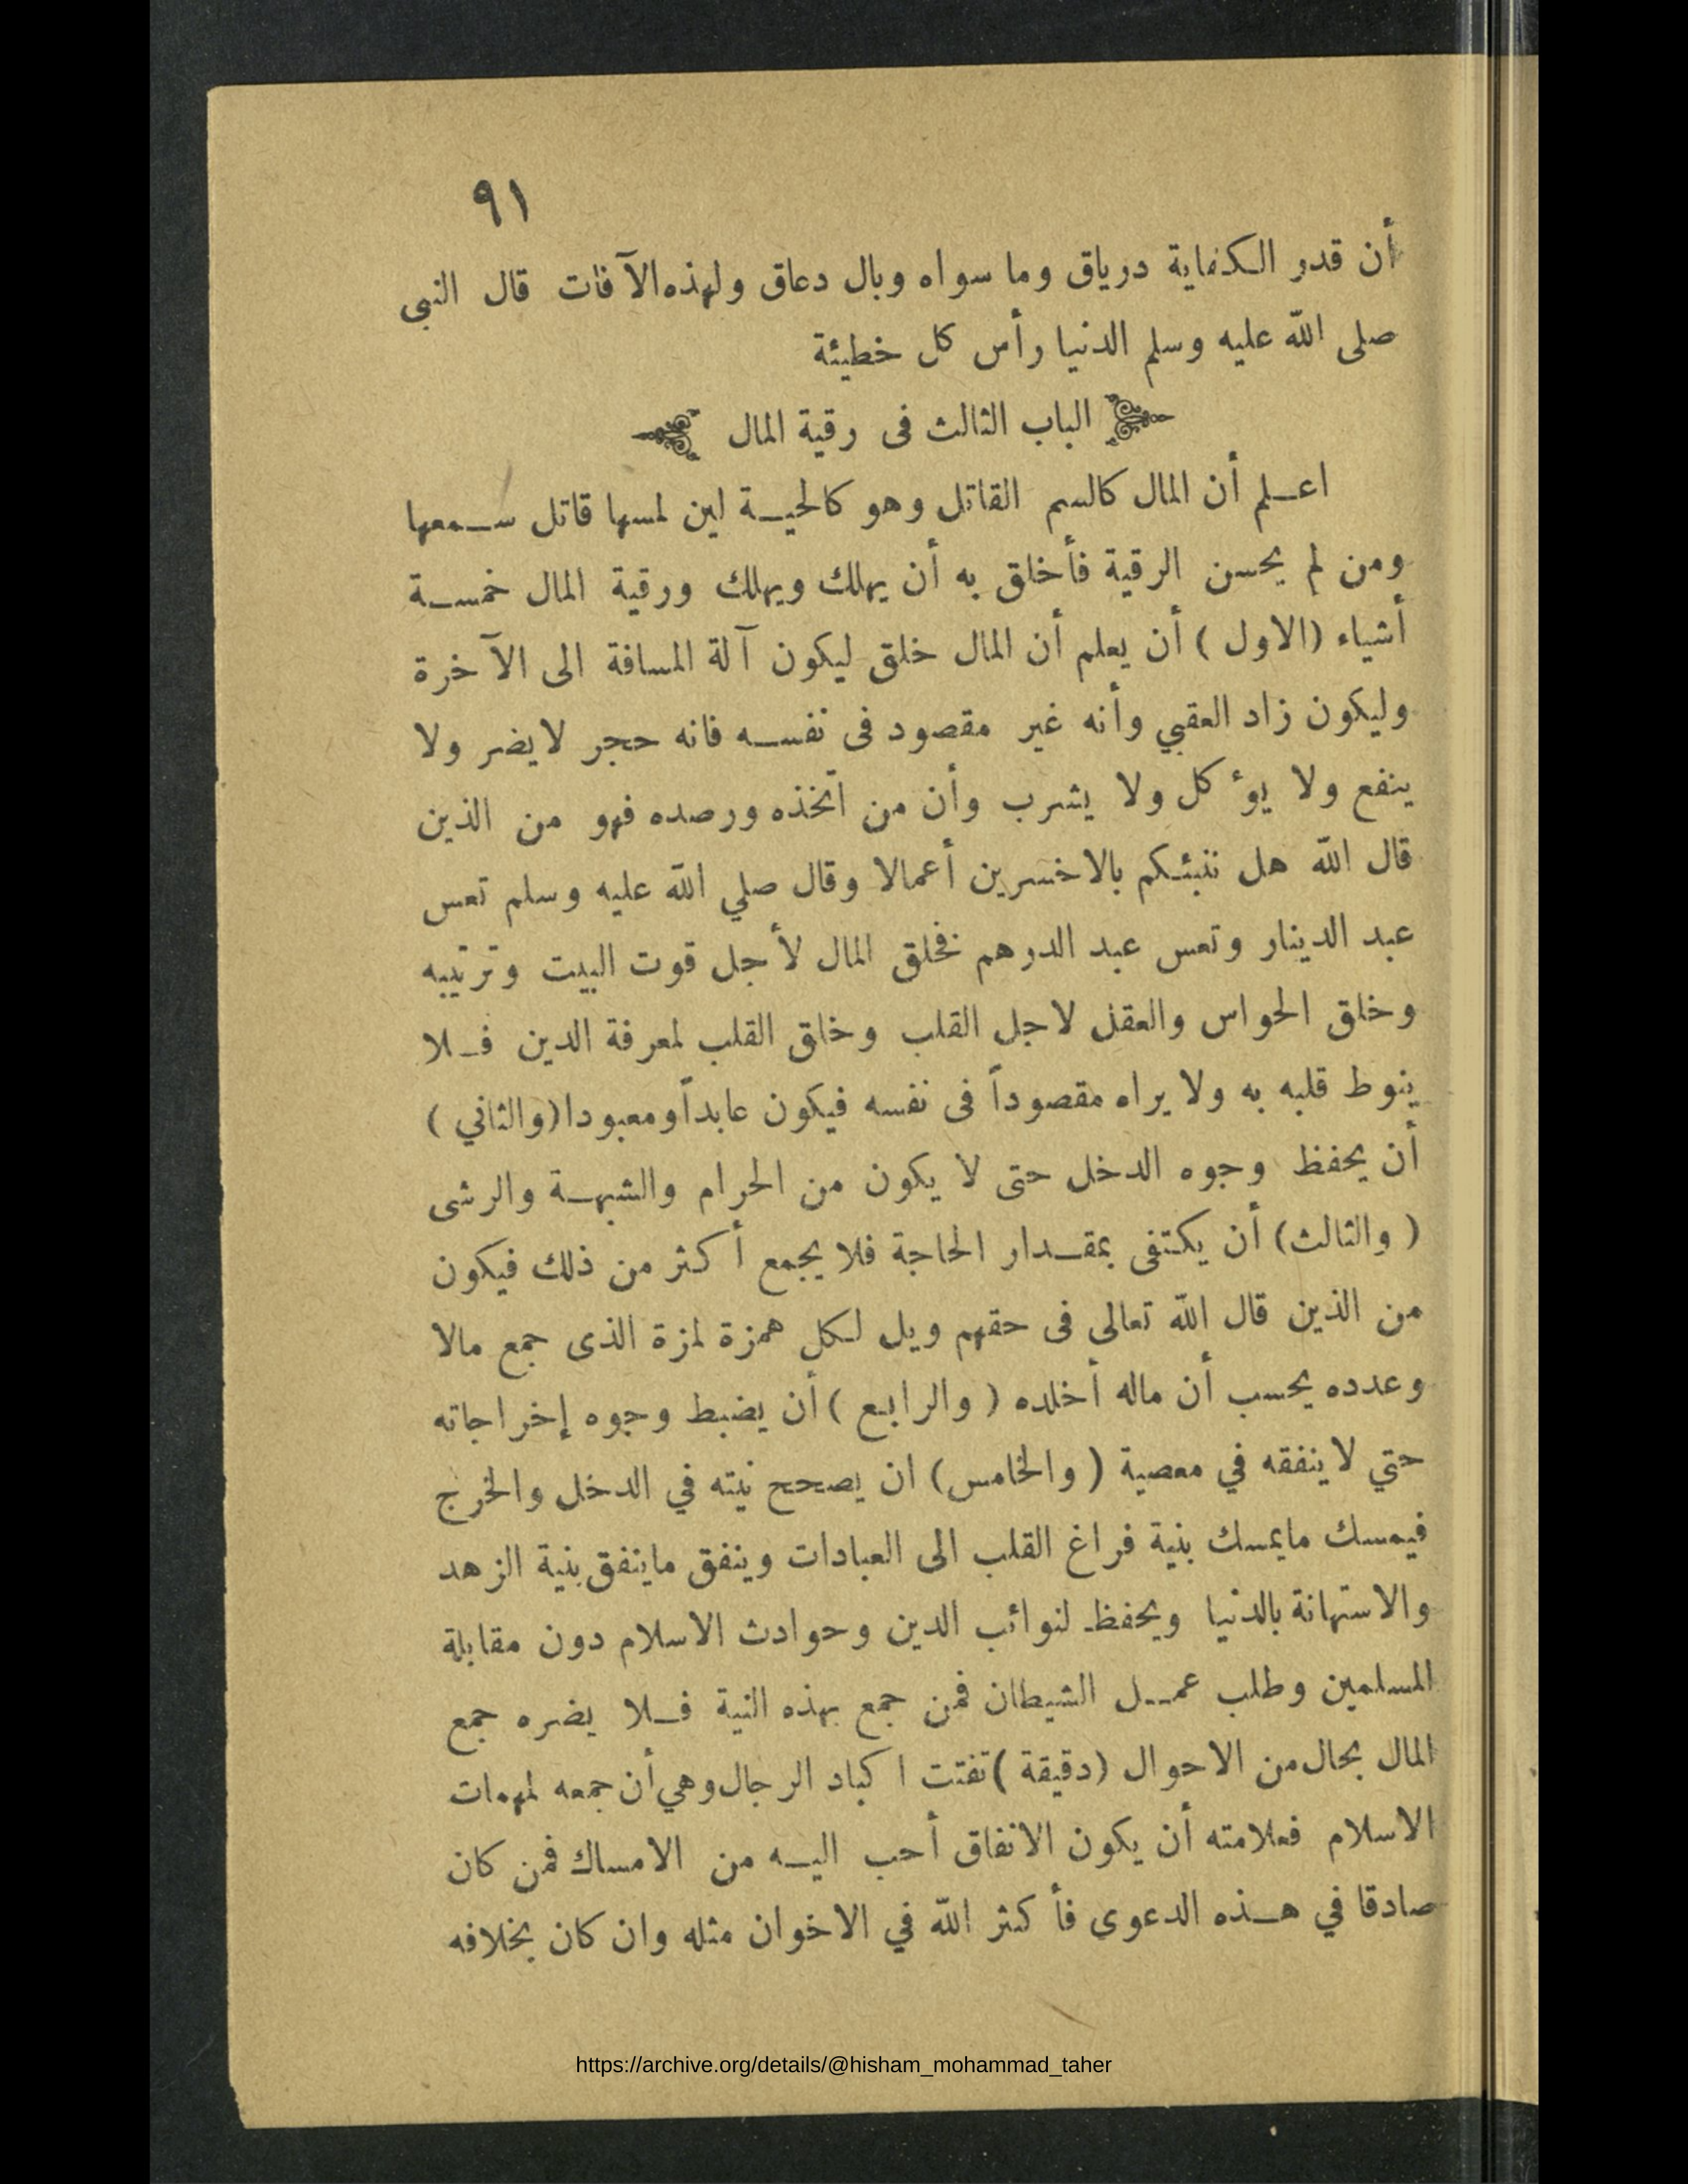 ٩١
أن قدر الكفاية درياق وما سواه وبال دعاق ولهذه الآفات قال النبى
صلى الله عليه وسلم الدنيا رأس كل خطيئة
الباب الثالث فى رقية المال
اعلم أن المال كالسم القاتل وهو كالحية لين لمسها قاتل سمعها
ومن لم يحسن الرقية فأخلق به أن يهلك ويهلك ورقية المال خمسة
أشياء (الاول) أن يعلم أن المال خلق ليكون آلة المسافة الى الآخرة
وليكون زاد العقبي وأنه غير مقصود فى نفسه فانه حجر لايضر ولا
ينفع ولا يؤكل ولا يشرب وأن من اتخذه ورصده فهو من الذين
قال الله هل ننبئكم بالاخسرين أعمالا وقال صلي الله عليه وسلم تعس
عبد الدينار وتعس عبد الدرهم فخلق المال لأجل قوت البيت وترتيبه
وخلق الحواس والعقل لاجل القلب وخلق القلب لمعرفة الدين فلا
ينوط قلبه به ولا يراه مقصوداً فى نفسه فيكون عابداً ومعبودا (والثاني)
أن يحفظ وجوه الدخل حتى لا يكون من الحرام والشبهة والرشى
(والثالث) أن يكتفى بمقدار الحاجة فلا يجمع أكثر من ذلك فيكون
من الذين قال الله تعالى فى حقهم ويل لكل همزة لمزة الذى جمع مالا
وعدده يحسب أن ماله أخلده (والرابع) أن يضبط وجوه إخراجاته
حتي لا ينفقه في معصية (والخامس) ان يصحح نيته في الدخل والخرج
فيمسك مايمسك بنية فراغ القلب الى العبادات وينفق ماينفق بنية الزهد
والاستهانة بالدنيا ويحفظ لنوائب الدين وحوادث الاسلام دون مقابلة
المسلمين وطلب عمل الشيطان فمن جمع بهذه النية فلا يضره جمع
المال بحال من الاحوال (دقيقة) تفتت اكباد الرجال وهي أن جمعه لمهمات
الاسلام فعلامته أن يكون الانفاق أحب اليه من الامساك فمن كان
صادقا في هذه الدعوى فأكثر الله في الاخوان مثله وان كان بخلافه
https://archive.org/details/@hisham_mohammad_taher